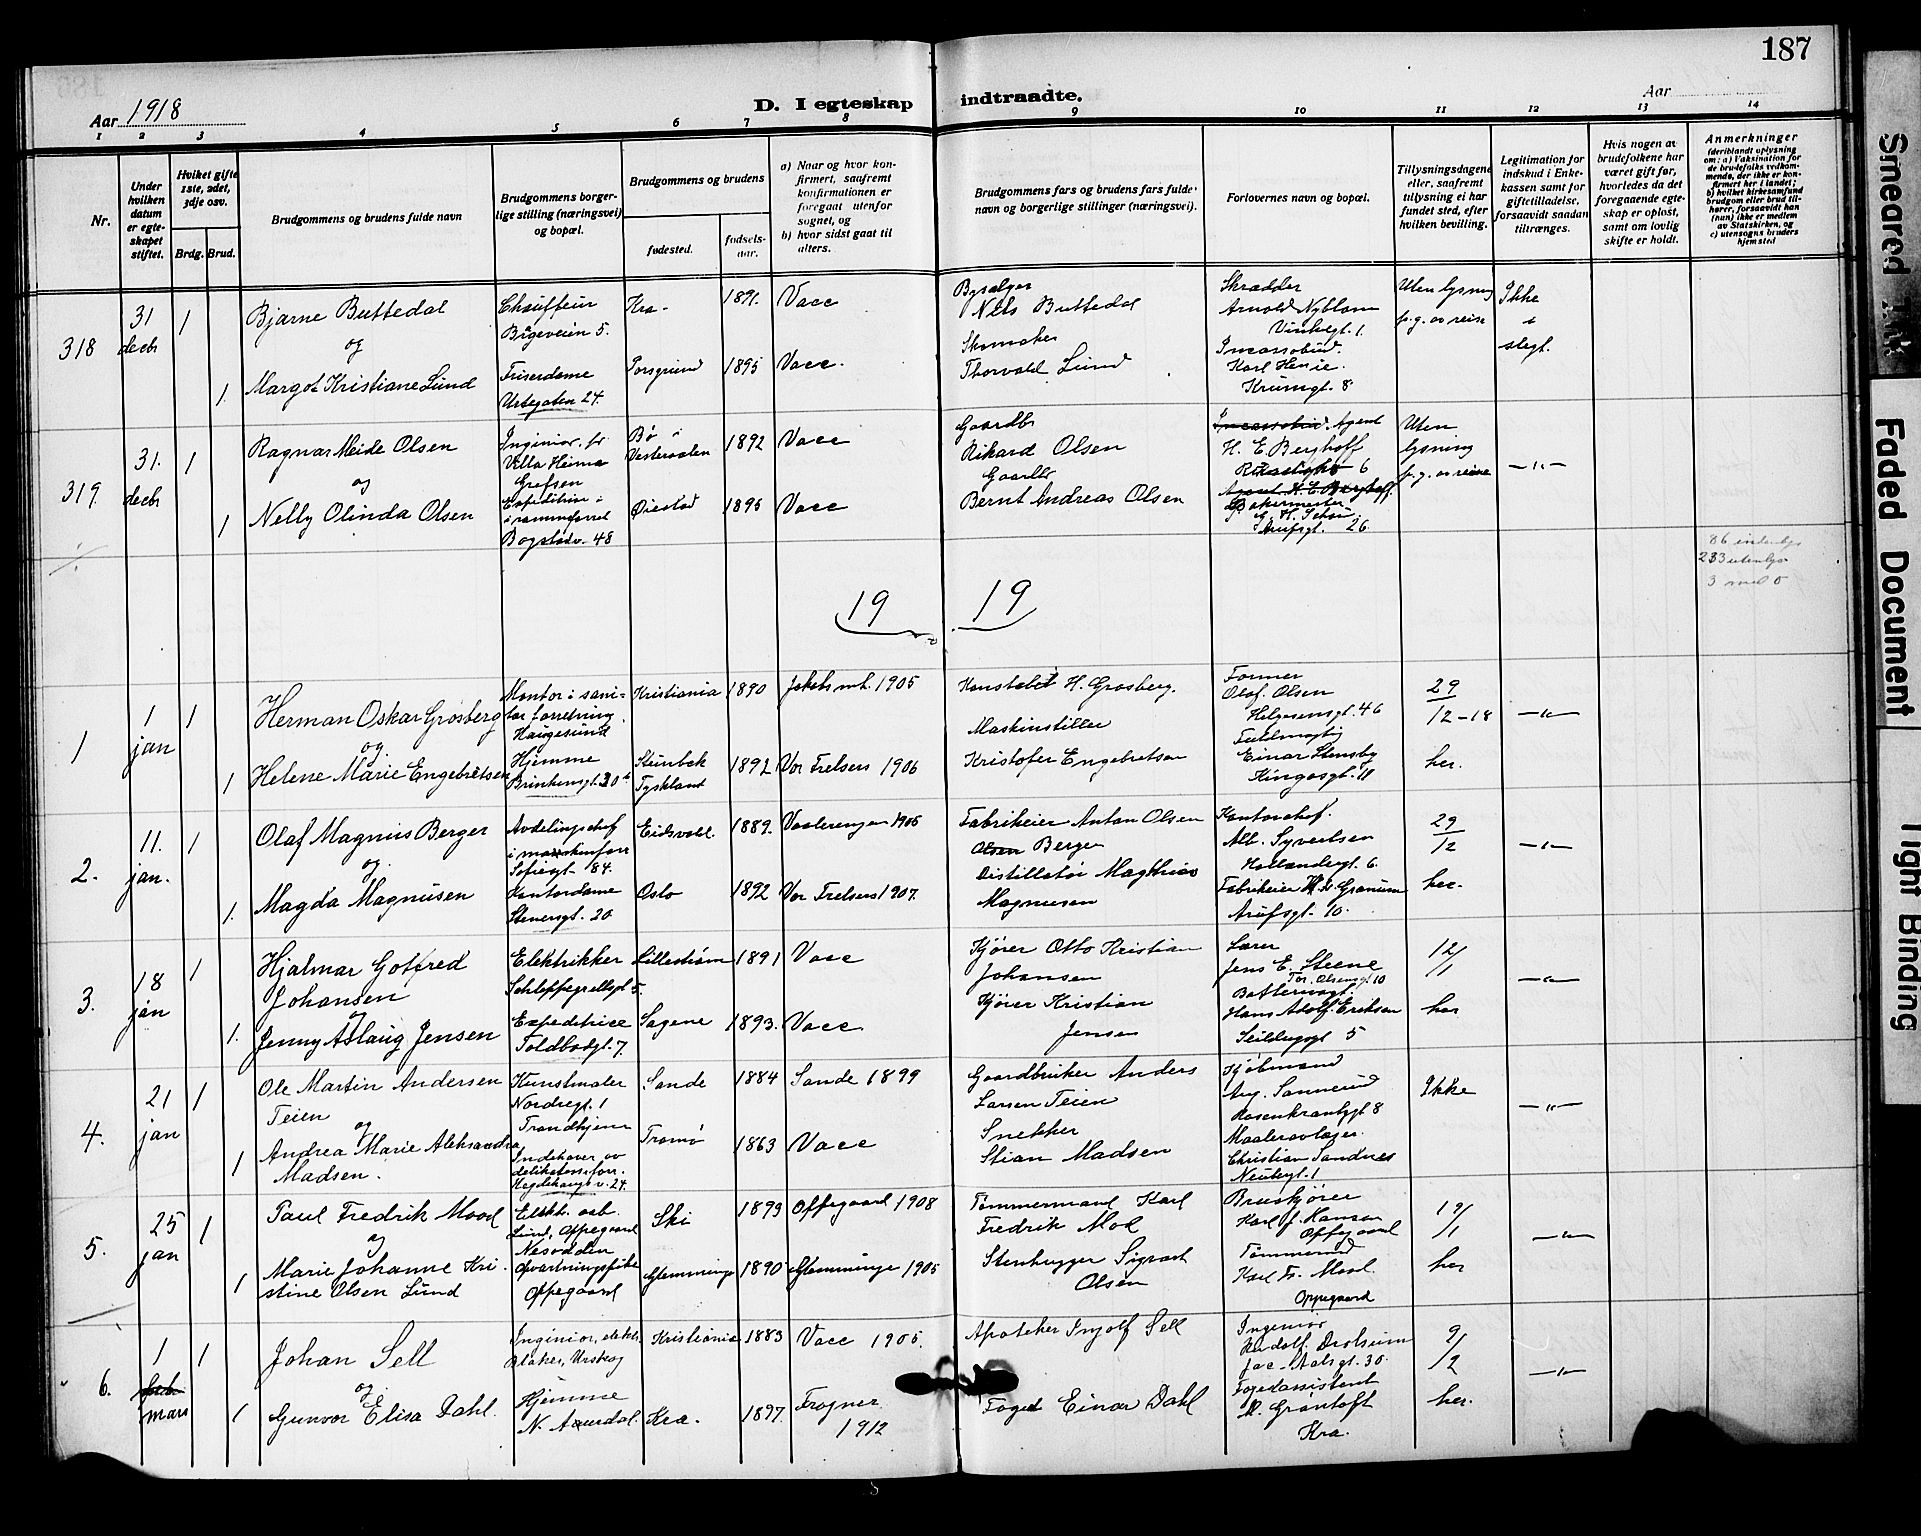 187
Aar 1918
D. I egteskap indtraadte.
Aar
1 2 3 4 5 6 7 8 9 10 11 12 13 14
Nr.
Under hvilken datum er egteskapet stiftet.
Hvilket gifte 1ste, 2det, 3dje osv.
Brdg. Brud.
Brudgommens og brudens fulde navn
Brudgommens borgerlige stilling (næringsvei) og bopæl.
Brudgommens og brudens
fødested.
fødselsaar.
a) Naar og hvor konfirmert, saafremt konfirmationen er foregaat utenfor sognet, og
b) hvor sidst gaat til alters.
Brudgommens fars og brudens fars fulde navn og borgerlige stillinger (næringsvei).
Forlovernes navn og bopæl.
Tillysningsdagene eller, saafremt tillysning ei har fundet sted, efter hvilken bevilling.
Legitimation for indskud i Enkekassen samt for giftetilladelse, forsaavidt saadan tiltrænges.
Hvis nogen av brudefolkene har været gift før, hvorledes da det foregaaende egteskap er opløst, samt om lovlig skifte er holdt.
Anmerkninger
(deriblandt oplysning om: a) Vaksination for de brudefolks vedkommende, der ikke er konfirmert her i landet; b) hvilket kirkesamfund brudgom eller brud tilhører, forsaavidt han (hun) ikke er medlem av Statskirken, og c) utensogns bruders hjemsted
318 31 decbr 1 Bjarne Buttedal Chauffeur Bigeveien 5. Kra. 1891. Vacc
Bysælger Nels Buttedal Skrædder Arnold Nyblom Vinkelgt. 1. Uten lysning p.g. av reise Ikke i slegt.
og
1. Margot Kristiane Lund Friserdame Urtegaten 24. Porsgrund 1895 Vacc.
Skomaker Thorvald Lund Incassobud. Karl Henie. Krumgt. 8.
319. 31. decbr 1 Ragnar Meide Olsen Ingeniør, fr Villa Heima Grefsen Bø i Vesteraalen 1892 Vacc
Gaardbr Rikard Olsen Agent H. E. Berghoff 6 Uten lysning p.g. av reise —"—
og
1 Nelly Olinda Olsen Bogstadv. 48 Øiestad 1895 Vacc
Gaardbr Bernt Andreas Olsen Bakermester 26.
86 indenlys
233 utenlys
3
19 19
1 1 jan 1 Herman Oskar Grosberg Montør i sanitær forretning. Haugesund Kristiania 1890 Jakobs mh. 1905
Konstabel H. Grosberg. Former Olaf. Olsen Helgesensgt. 46 29/12-18 —"—
og
1 Helene Marie Engebretsen Hjemme Brinkensgt. 30 Steinbek Tyskland 1892 Vor Frelsers 1906
Maskinstiller Kristofer Engebretsen Fuldmægtig Einar Stensby Kingosgt. 11 her.
2. 11. jan. 1 Olaf Magnus Berger Avdelingschef i maskinforr Sofiesgt. 84. Eidsvold. 1889. Vaalerengen 1905
Fabrikeier Anton Olsen Olsen Berger Kontorchef. Alb. Syvertsen Hollendergt. 6. 29/12 —"—
og
1. Magda Magnusen Kontordame Stenersgt. 20 Oslo 1892 Vor Frelsers 1907.
Distillatør Magnusen Fabrikeier Granum Arupsgt. 10. her.
3. 18 jan 1 Hjalmar Gotfred Johansen Elektrikker Schleppegrellsgt 5. Lillestrøm 1891 Vacc
Kjører Otto Kristian Johansen Lærer Jens E. Steene 10 12/1 —"—
og
1. Jenny Aslaug Jensen Expeditrice Toldbodgt. 7. Sagene 1893. Vacc
Kjører Kristian Jensen Hans Adolf. Eriksen Seilduksgt 5 her
4. 21 jan 1 Ole Martin Andersen Teien Kunstmaler Nordregt. 1 Trondhjem Sande 1884 Sande 1899
Gaardbruker Anders Larsen Teien Kjøbmand Aug. Sannerud Rosenkrantzgt 8 Ikke —"—
og
1 Andrea Marie Aleksandra Madsen. Indehaver av delikatesseforr. Hegdehaugsv. 24. Tromø 1863 Vacc
Snekker Stian Madsen Christian Sandnes
5. 25 jan 1 Paul Fredrik Mood Lund, Oppegaard Nesodden Ski 1893 Oppegaard 1908
Tømmermand Karl Fredrik Moe Bruskjører Karl J. Hansen Oppegaard 19/1 —"—
og
1 Marie Johanne Kristine Olsen Lund Opvartningspike Oppegaard Glemminge 1890 Glemminge 1905
Stenhugger Sigvart Olsen Karl Fr. Mood. Oppegaard her
6. 1 feb. mars 1 Johan Sell Ingeniør, elektr. Kristiania 1883 Vacc 1905.
Apoteker Injolf Sell Ingeniør Rudolf Drolsum Jac. Aalsgt. 30. 9/2 —"—
og
1 Gunvor Elisa Dahl. Hjemme N. Aurdal. Kra. 1897. Frogner 1912
Foged Einar Dahl Fogedassistent M. Grøntoft Kra. her.
Smeared Ink
Faded Document
Tight Binding